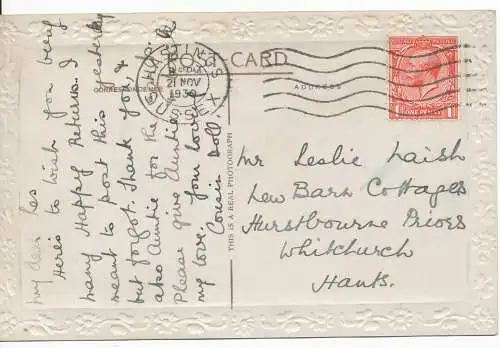 POST CARD
CORRESPONDENCE
ADDRESS
HASTINGS
21 NOV
1930
SUSSEX
ONE PENNY
THIS IS A REAL PHOTOGRAPH
My dear Les
Here's to wish you being
many Happy Returns. I
meant to post this yesterday
but forgot. Thank you &
also Auntie for the
Please give Auntie
my love. Your loving
Cousin Doll.
Mr Leslie Laish
Lew Barn Cottages
Hurstbourne Priors
Whitchurch
Hants.